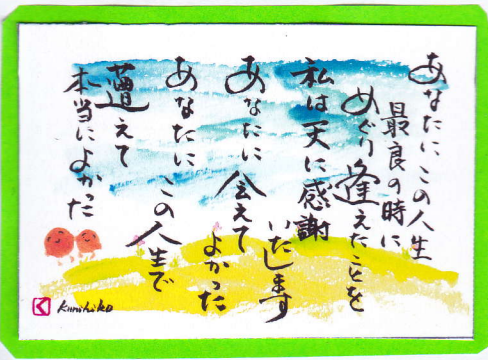 あなたにこの人生
最良の時に
めぐり逢えたことを
私は天に感謝
いたします
あなたに会えて
よかった
あなたにこの人生で
遭えて
本当によかった
Kunihiko